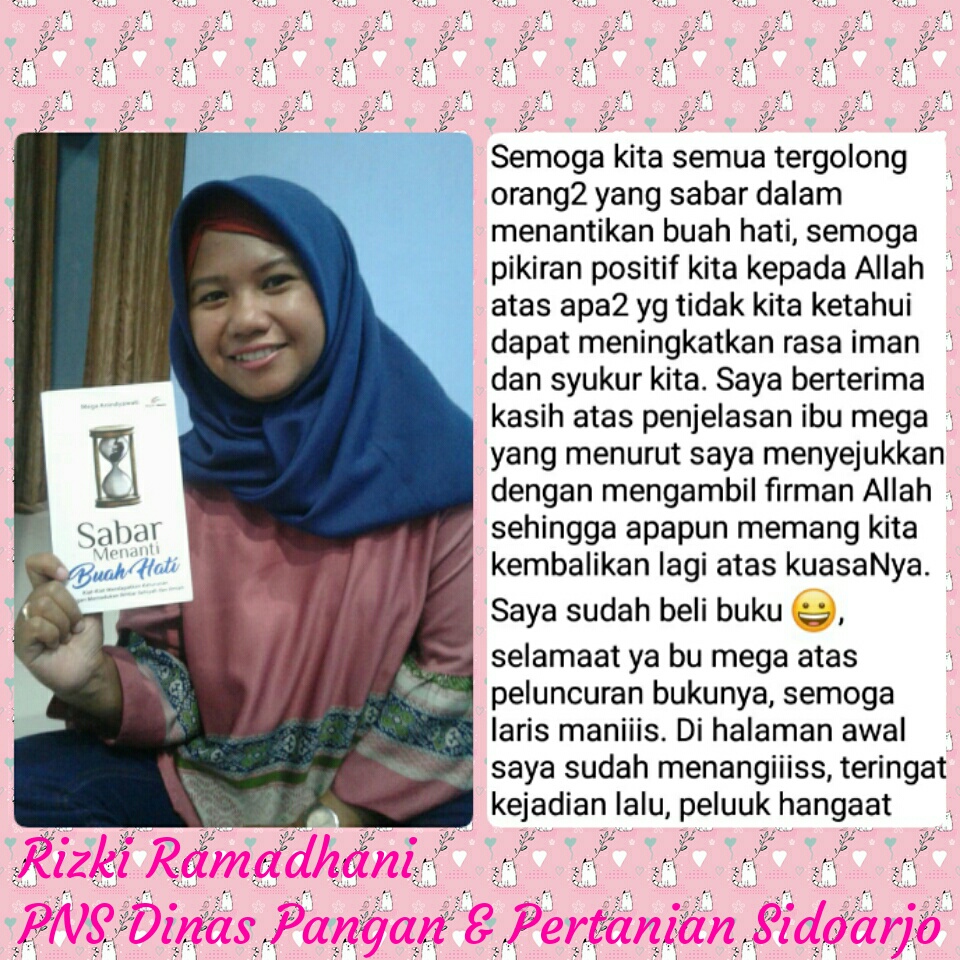 Mega Anindyawati
Sabar
Menanti
Buah Hati
Semoga kita semua tergolong
orang2 yang sabar dalam
menantikan buah hati, semoga
pikiran positif kita kepada Allah
atas apa2 yg tidak kita ketahui
dapat meningkatkan rasa iman
dan syukur kita. Saya berterima
kasih atas penjelasan ibu mega
yang menurut saya menyejukkan
dengan mengambil firman Allah
sehingga apapun memang kita
kembalikan lagi atas kuasaNya.
Saya sudah beli buku 😀,
selamaat ya bu mega atas
peluncuran bukunya, semoga
laris maniiis. Di halaman awal
saya sudah menangiiiss, teringat
kejadian lalu, peluuk hangaat
Rizki Ramadhani
PNS Dinas Pangan & Pertanian Sidoarjo